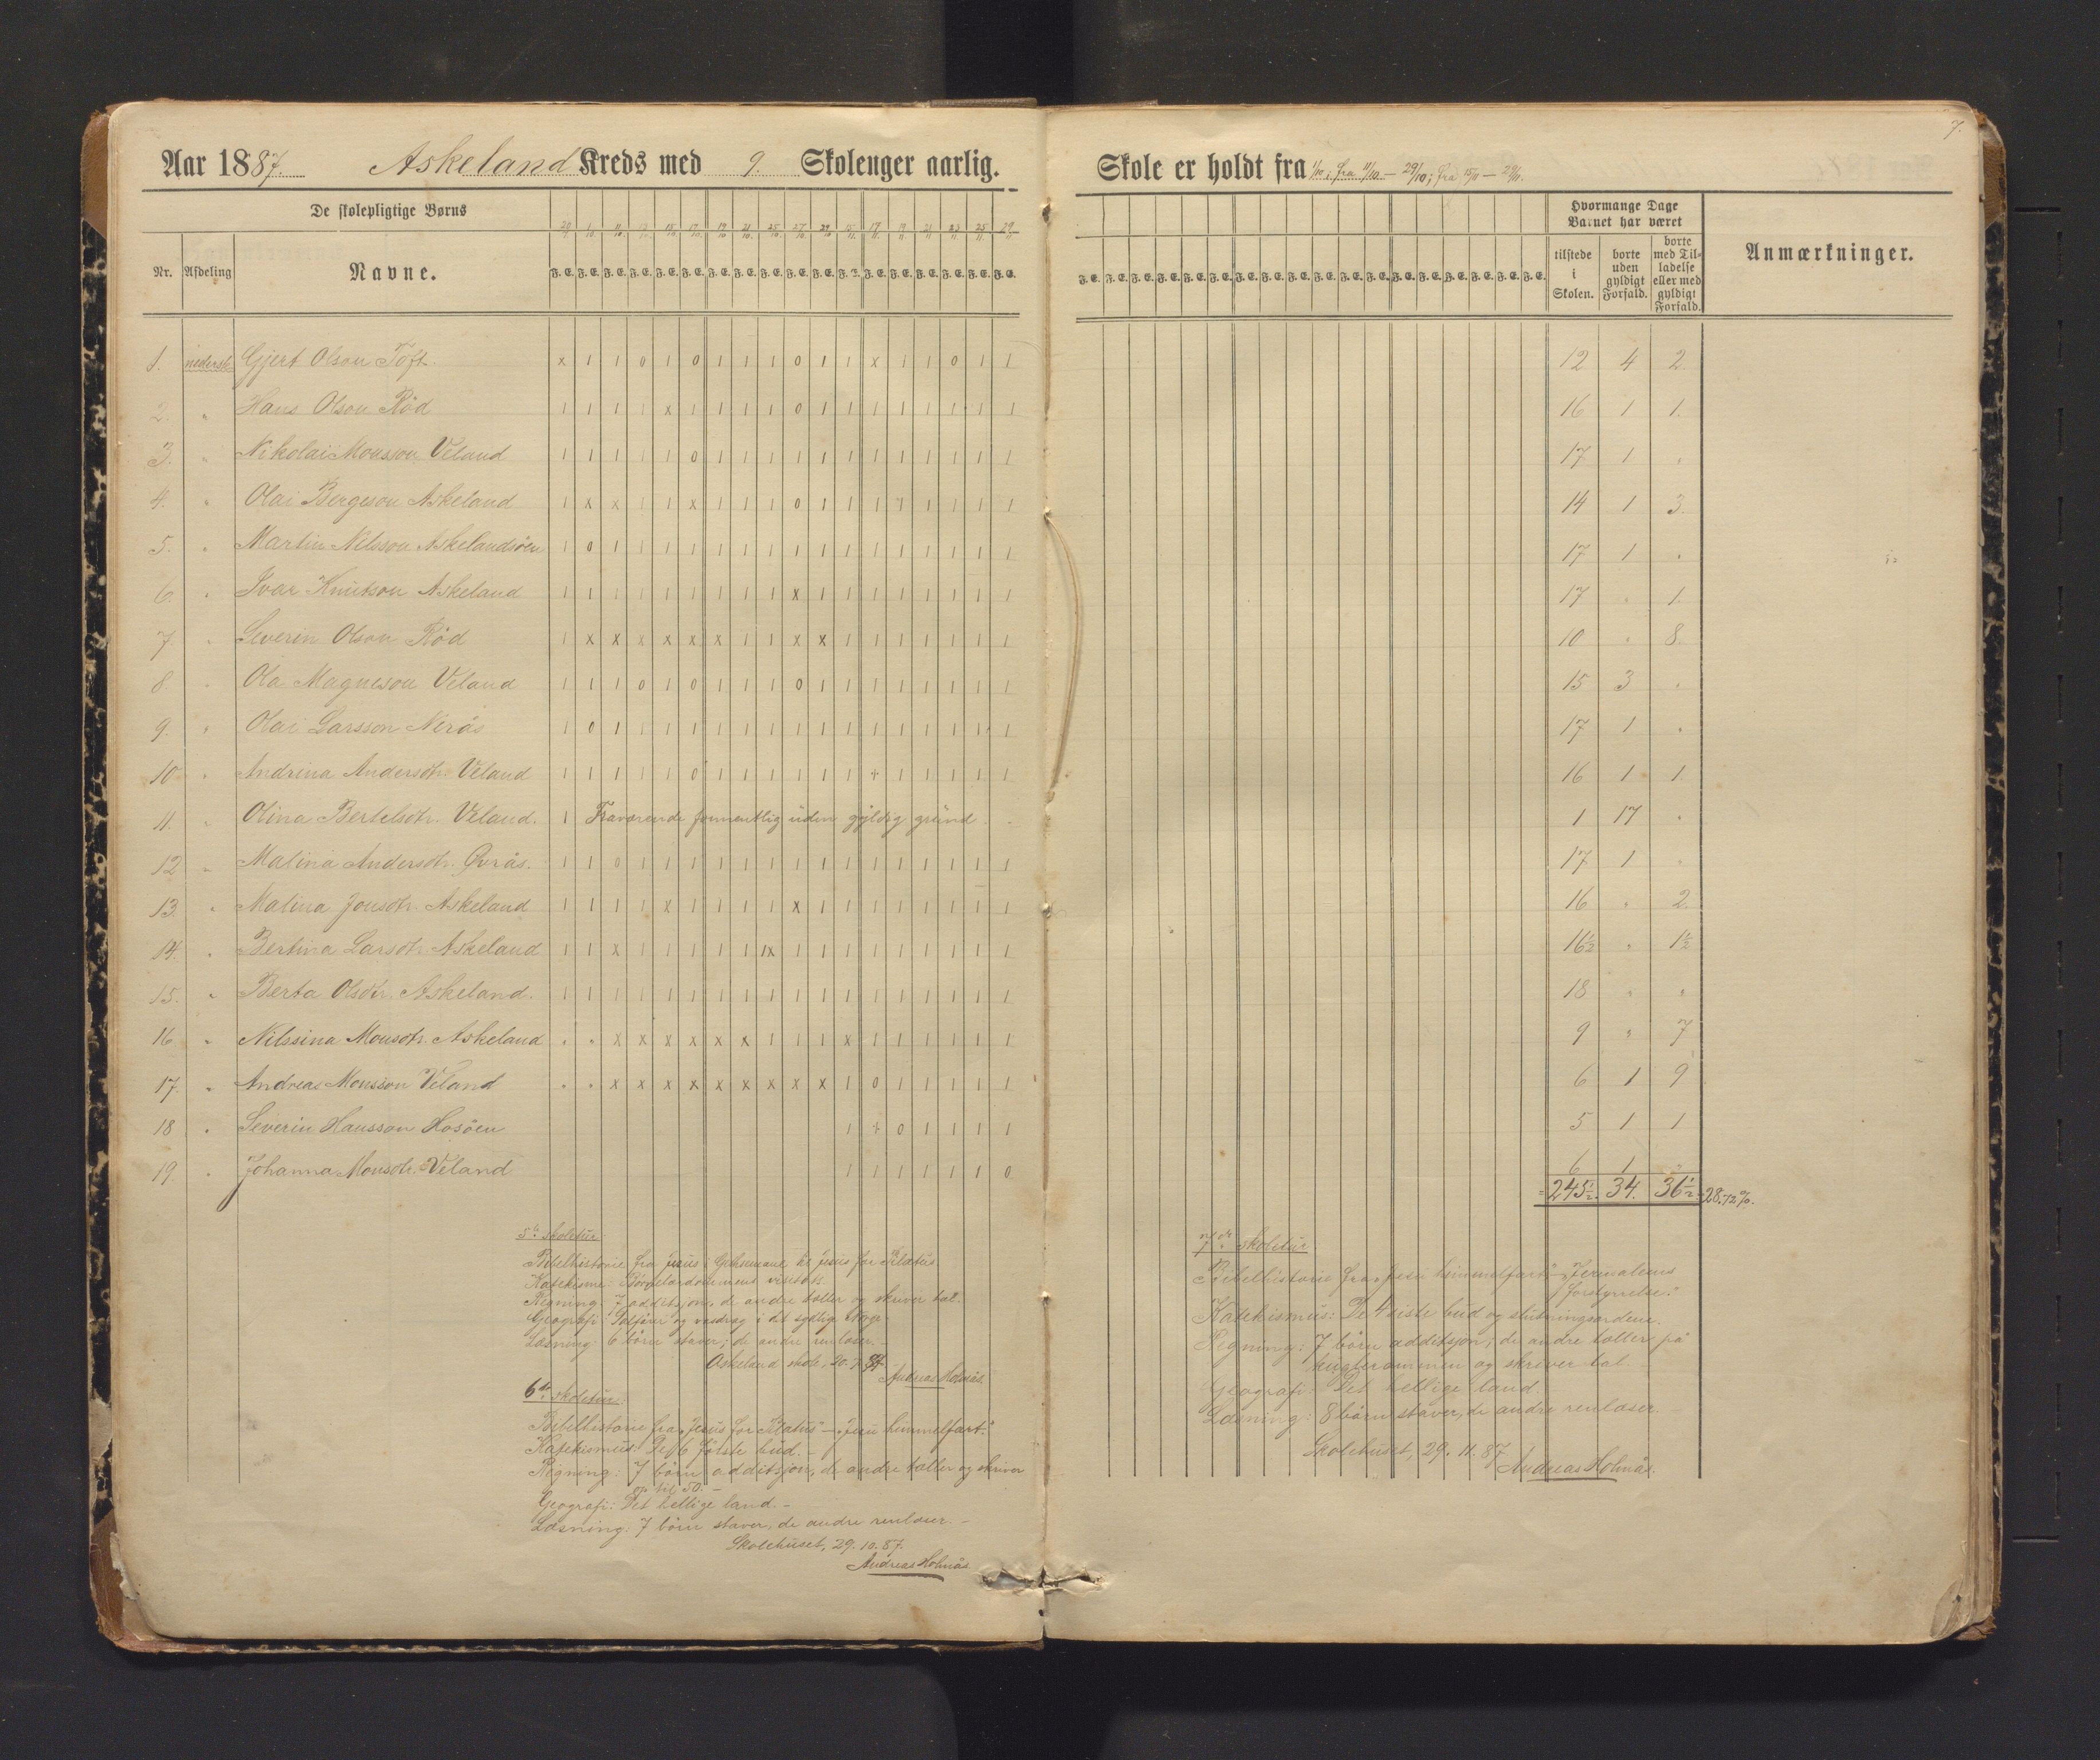 7.
Aar 1887. Askeland Kreds med 9. Skoleuger aarlig.
Skole er holdt fra 1/10; fra 11/10 – 29/10; fra 15/11 – 29/11.
De skolepligtige Børns
Nr. Afdeling Navne.
29/9 1/10 11/10 13/10 15/10 17/10 19/10 21/10 25/10 27/10 29/10 15/11 17/11 19/11 21/11 23/11 25/11 29/11
F. E. F. E. F. E. F. E. F. E. F. E. F. E. F. E. F. E. F. E. F. E. F. E. F. E. F. E. F. E. F. E. F. E. F. E.
F. E. F. E. F. E. F. E. F. E. F. E. F. E. F. E. F. E. F. E. F. E. F. E. F. E. F. E. F. E. F. E. F. E. F. E.
Hvormange Dage Barnet har været
tilstede i Skolen.
borte uden gyldigt Forfald.
borte med Tilladelse eller med gyldigt Forfald.
Anmærkninger.
1. nederste Gjert Olson Toft. x 1 1 0 1 0 1 1 1 0 1 1 x 1 1 0 1 1 12 4 2.
2. " Hans Olson Röd 1 1 1 1 x 1 1 1 1 0 1 1 1 1 1 1 1 1 16 1 1.
3. " Nikolai Monsson Veland 1 1 1 1 1 0 1 1 1 1 1 1 1 1 1 1 1 1 17 1 "
4. " Olai Bergeson Askeland 1 x x 1 1 x 1 1 1 0 1 1 1 1 1 1 1 1 14 1 3.
5. " Martin Nilsson Askelandsöen 1 0 1 1 1 1 1 1 1 1 1 1 1 1 1 1 1 1 17 1 "
6. " Ivar Knutson Askeland 1 1 1 1 1 1 1 1 1 x 1 1 1 1 1 1 1 1 17 " 1.
7. " Severin Olson Röd 1 x x x x x x 1 1 x x 1 1 1 1 1 1 1 10 " 8.
8. " Ola Magneson Veland 1 1 1 0 1 0 1 1 1 0 1 1 1 1 1 1 1 1 15 3 "
9. " Olai Larsson Nerås 1 0 1 1 1 1 1 1 1 1 1 1 1 1 1 1 1 1 17 1 "
10 " Andrina Andersdtr. Veland 1 1 1 1 1 0 1 1 1 1 1 1 + 1 1 1 1 1 16 1 1
11. " Olina Bertelsdtr. Veland. 1 Fraværende formentlig uden gyldig grund. 1 17 "
12 " Malina Andersdtr. Övrås. 1 1 0 1 1 1 1 1 1 1 1 1 1 1 1 1 1 1 17 1 "
13. " Malina Jonsdtr. Askeland 1 1 1 1 x 1 1 1 1 x 1 1 1 1 1 1 1 1 16 " 2.
14. " Bertina Larsdtr. Askeland 1 1 x 1 1 1 1 1 1x 1 1 1 1 1 1 1 1 1 16½ " 1½
15. " Berta Olsdtr. Askeland. 1 1 1 1 1 1 1 1 1 1 1 1 1 1 1 1 1 1 18 " "
16 " Nilssina Monsdtr. Askeland " " x x x x x x 1 1 1 x 1 1 1 1 1 1 9 " 7
17. " Andreas Monsson Veland " " x x x x x x x x x 1 0 1 1 1 1 1 6 1 9
18 " Severin Hansson Hosöen 1 + 0 1 1 1 1 5 1 1
19. " Johanna Monsdtr. Veland 1 1 1 1 1 1 0 6 1 "
= 245½. 34. 36½ = 28.72%.
5te skoletur.
Bibelhistorie fra Jesus i Getsemane til Jesus for Pilatus.
Katekisme: Börnelærdommens
Regning: 7 additsjon, de andre tæller og skriver tal.
Geografi: og vasdrag i det sydlige Norge
Læsning: 6 börn staver; de andre renlæser.
Askeland skole, 87.
Andreas Holmås.
6te skoletur.
Bibelhistorie fra „Jesus for Pilatus" – „Jesu himmelfart."
Katekismus: De 6 förste bud. –
Regning: 7 börn additsjon, de andre tæller og skriver
op til 50. –
Geografi: Det hellige land. –
Læsning: 7 börn staver, de andre renlæser. –
Skolehuset, 29. 10. 87.
Andreas Holmås
7de skoletur
Bibelhistorie fra „Jesu himmelfart" – „Jerusalems
forstyrrelse."
Katekismus: De 4 siste bud og slutningsordene.
Regning: 7 börn additsjon; de andre tæller på
kuglerammen og skriver tal. –
Geografi: Det hellige land.
Læsning: 8 börn staver, de andre renlæser. –
Skolehuset, 29. 11. 87
Andreas Holmås.